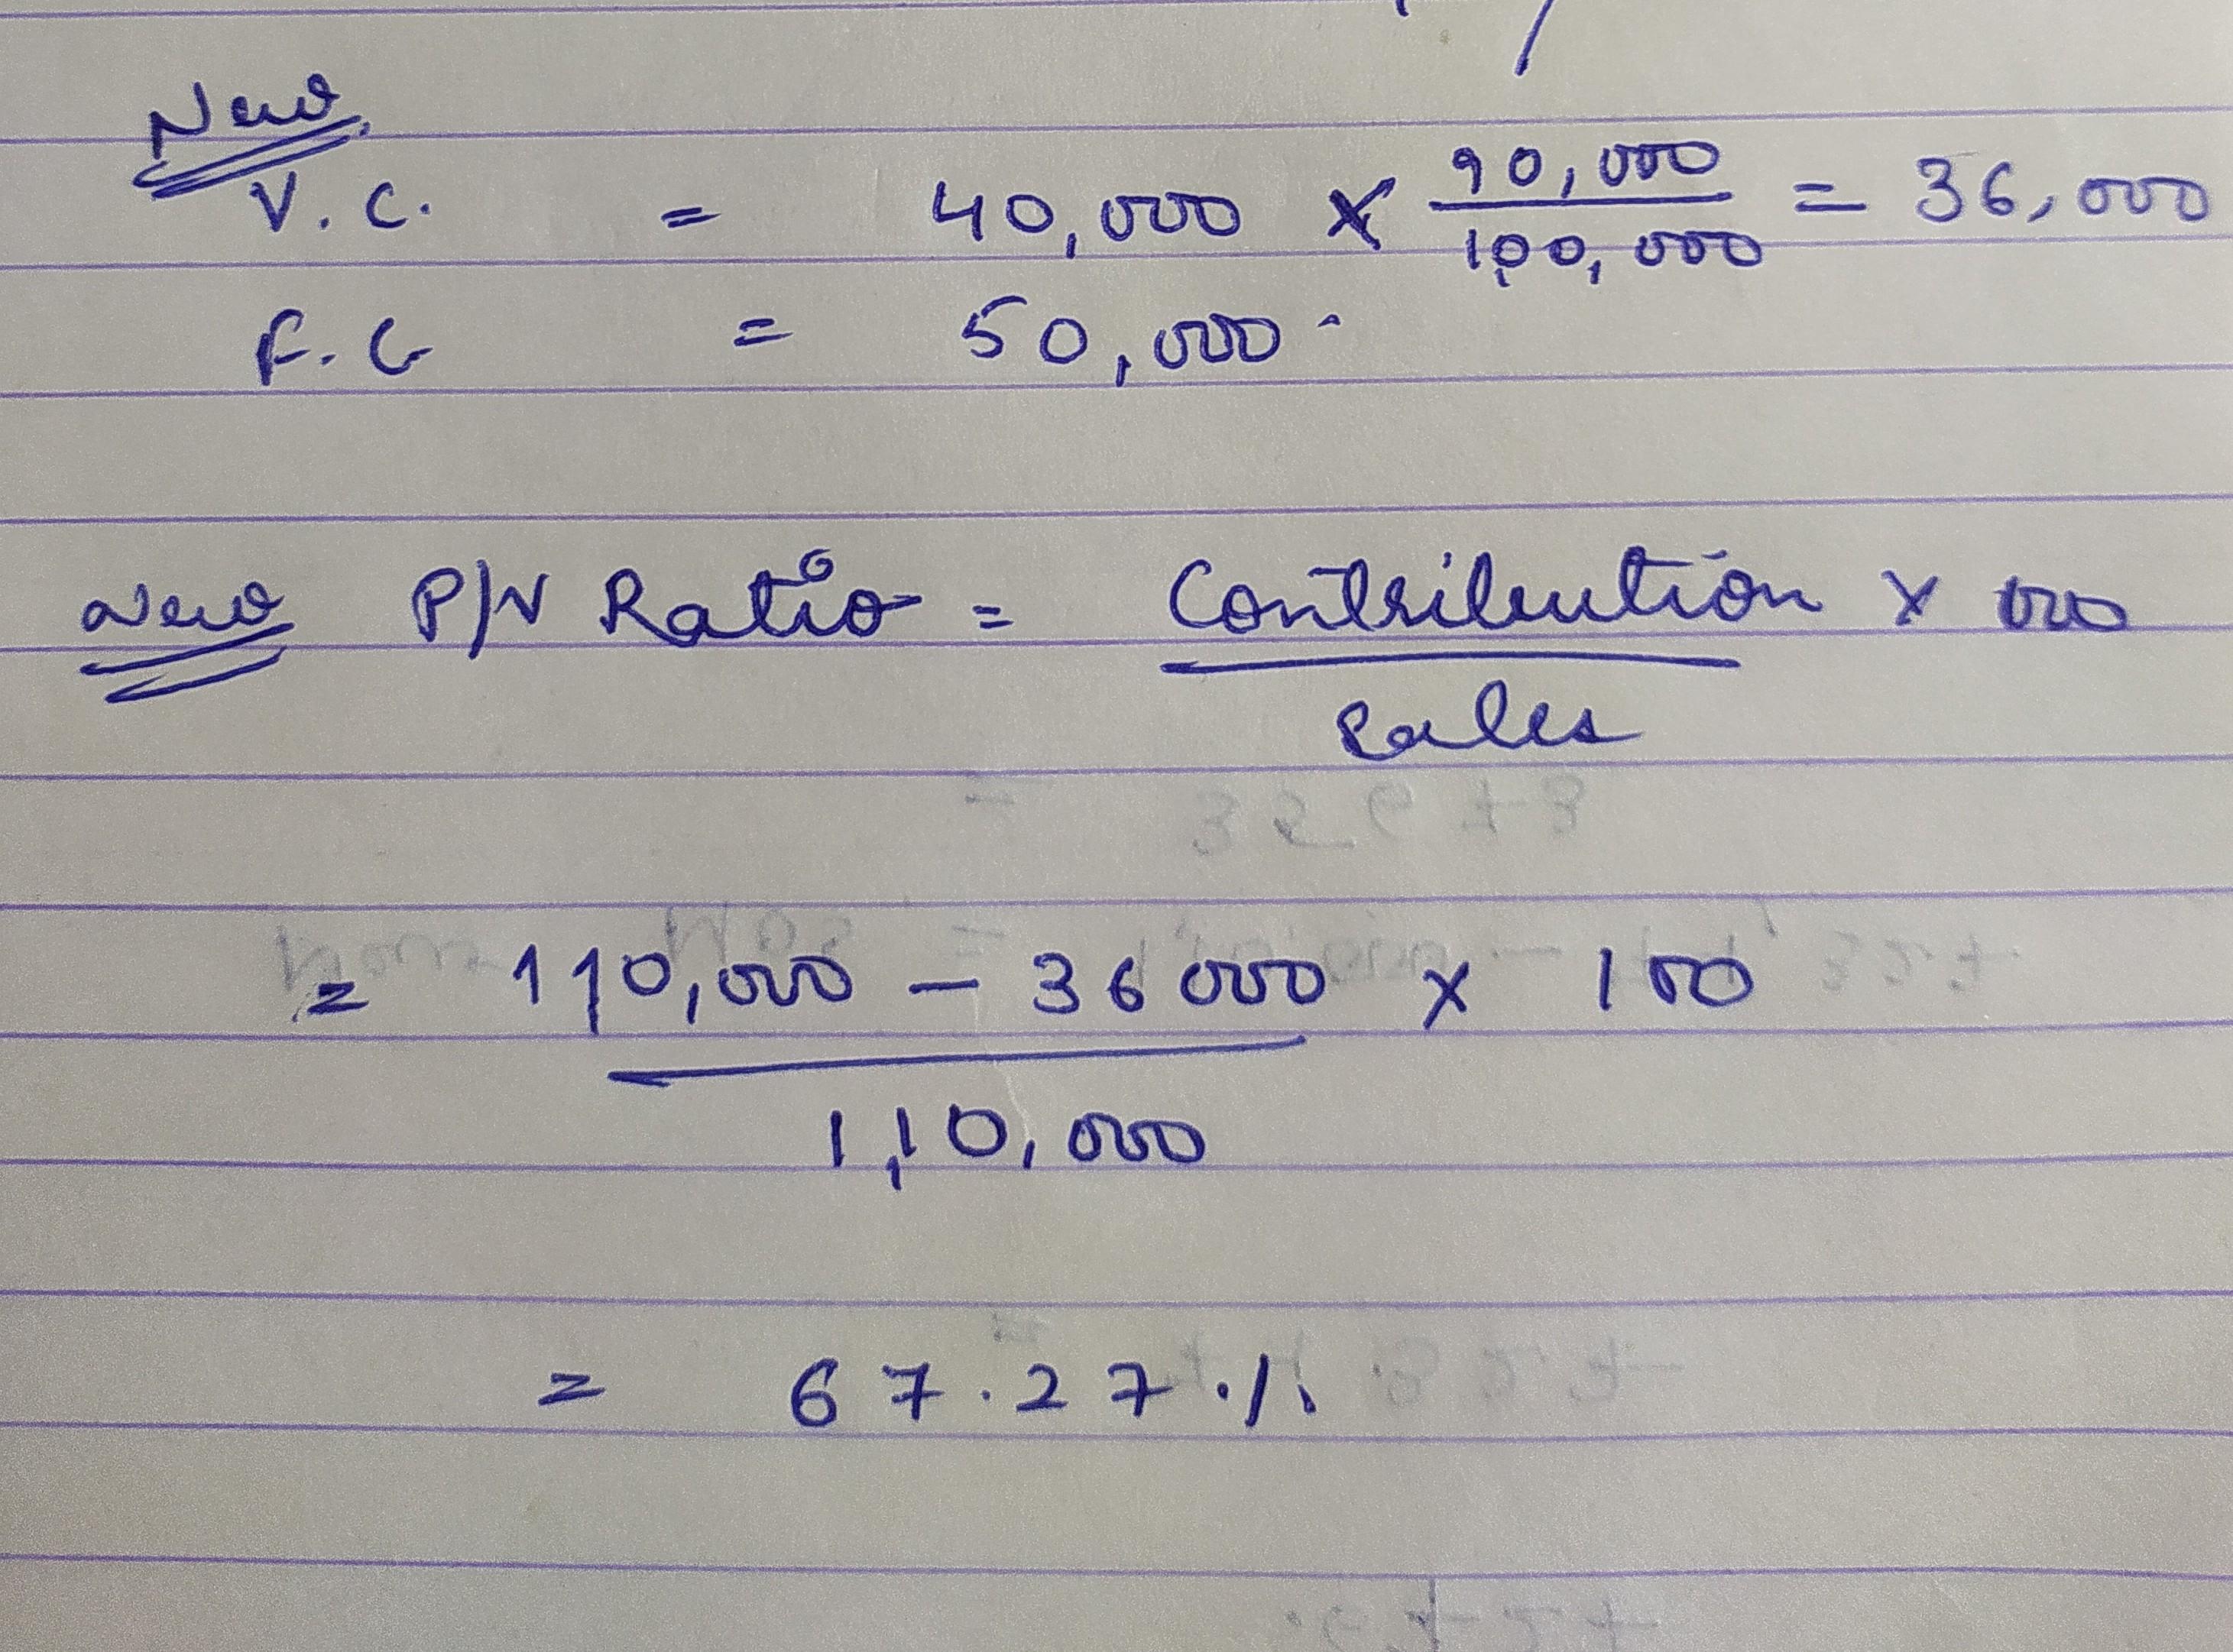 New
V.C. = 40,000 × 90,000/1,00,000 = 36,000
F.C = 50,000
New P/V Ratio = Contribution/Sales × 100
= 1,10,000 - 36000/1,10,000 × 100
= 67.27 %